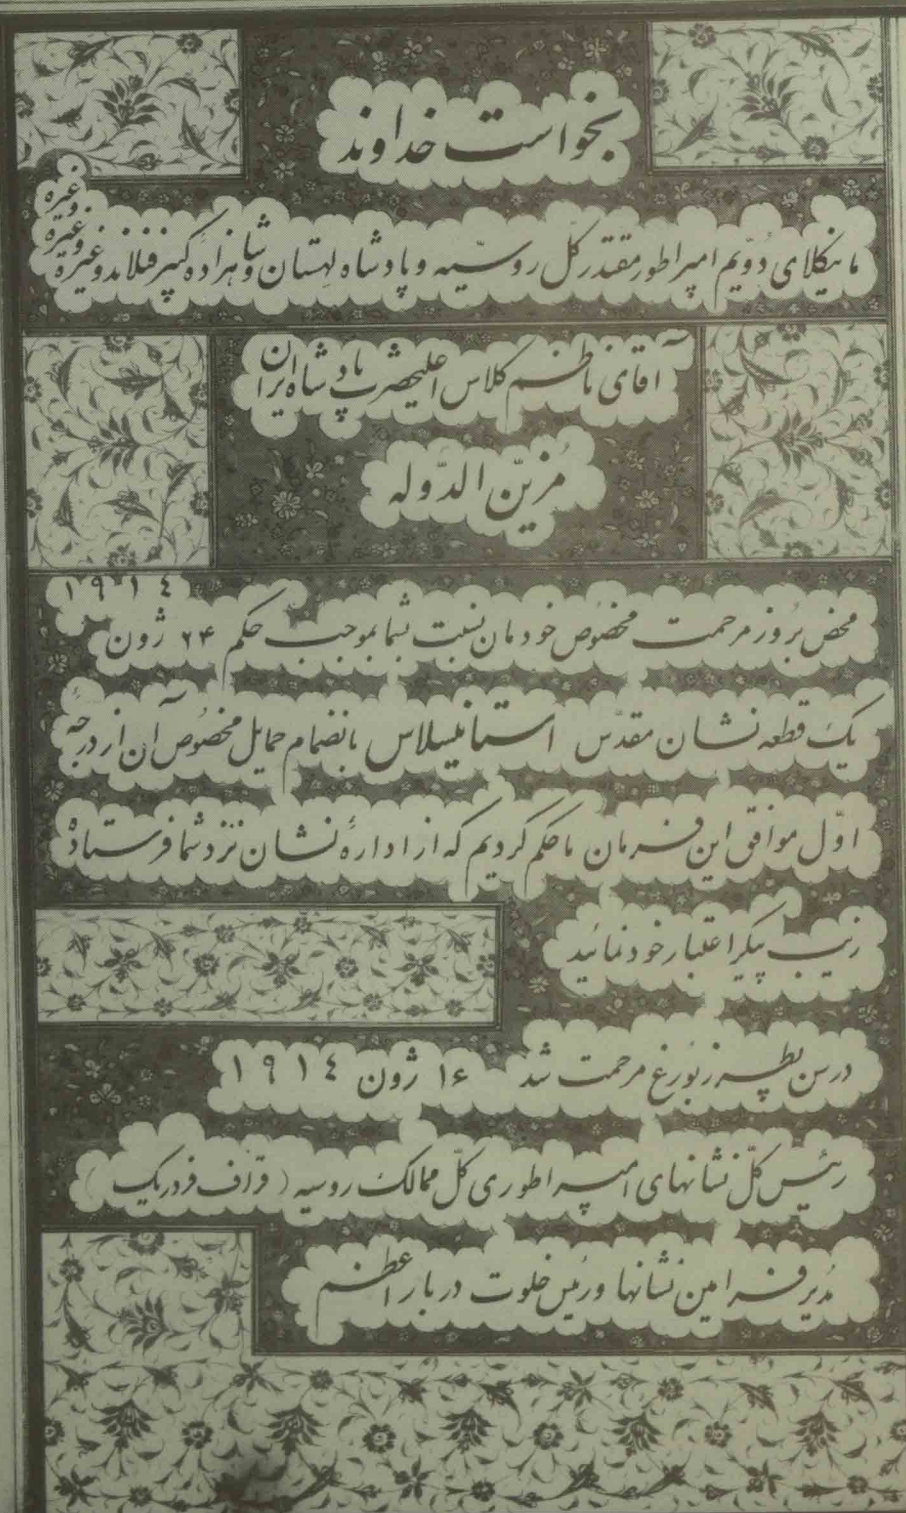 بخواست خداوند
ما نیکلای دویم امپراطور مقتدر کل روسیه و پادشاه لهستان و شاهزاده کبیر فنلاند و غیره و غیره و غیره
آقای ناظم کلاس اعلیحضرت پادشاه ایران
مُزیّن الدّوله
محض بُروز مرحمت مخصُوص خودمان نسبت بشما بموجب حکم ۲۴ ژون ۱۹۱٤
یک قطعه نشان مقدّس استانیسلاس بانضمام حمایل مخصُوص آن از درجهٔ
اوّل موافق این فرمان ما حکم کردیم که از ادارهٔ نشان نزد شما فرستاده
زیب پیکر اعتبار خود نمائید
در سن پطرزبُورغ مرحمت شد ۱۶ ژون ۱۹۱٤
رئیس کلّ نشانهای امپراطوری کلّ ممالک روسیه (قراف فردریک)
مُدیر فرامین نشانها و رئیس خلوت دربار اعظم